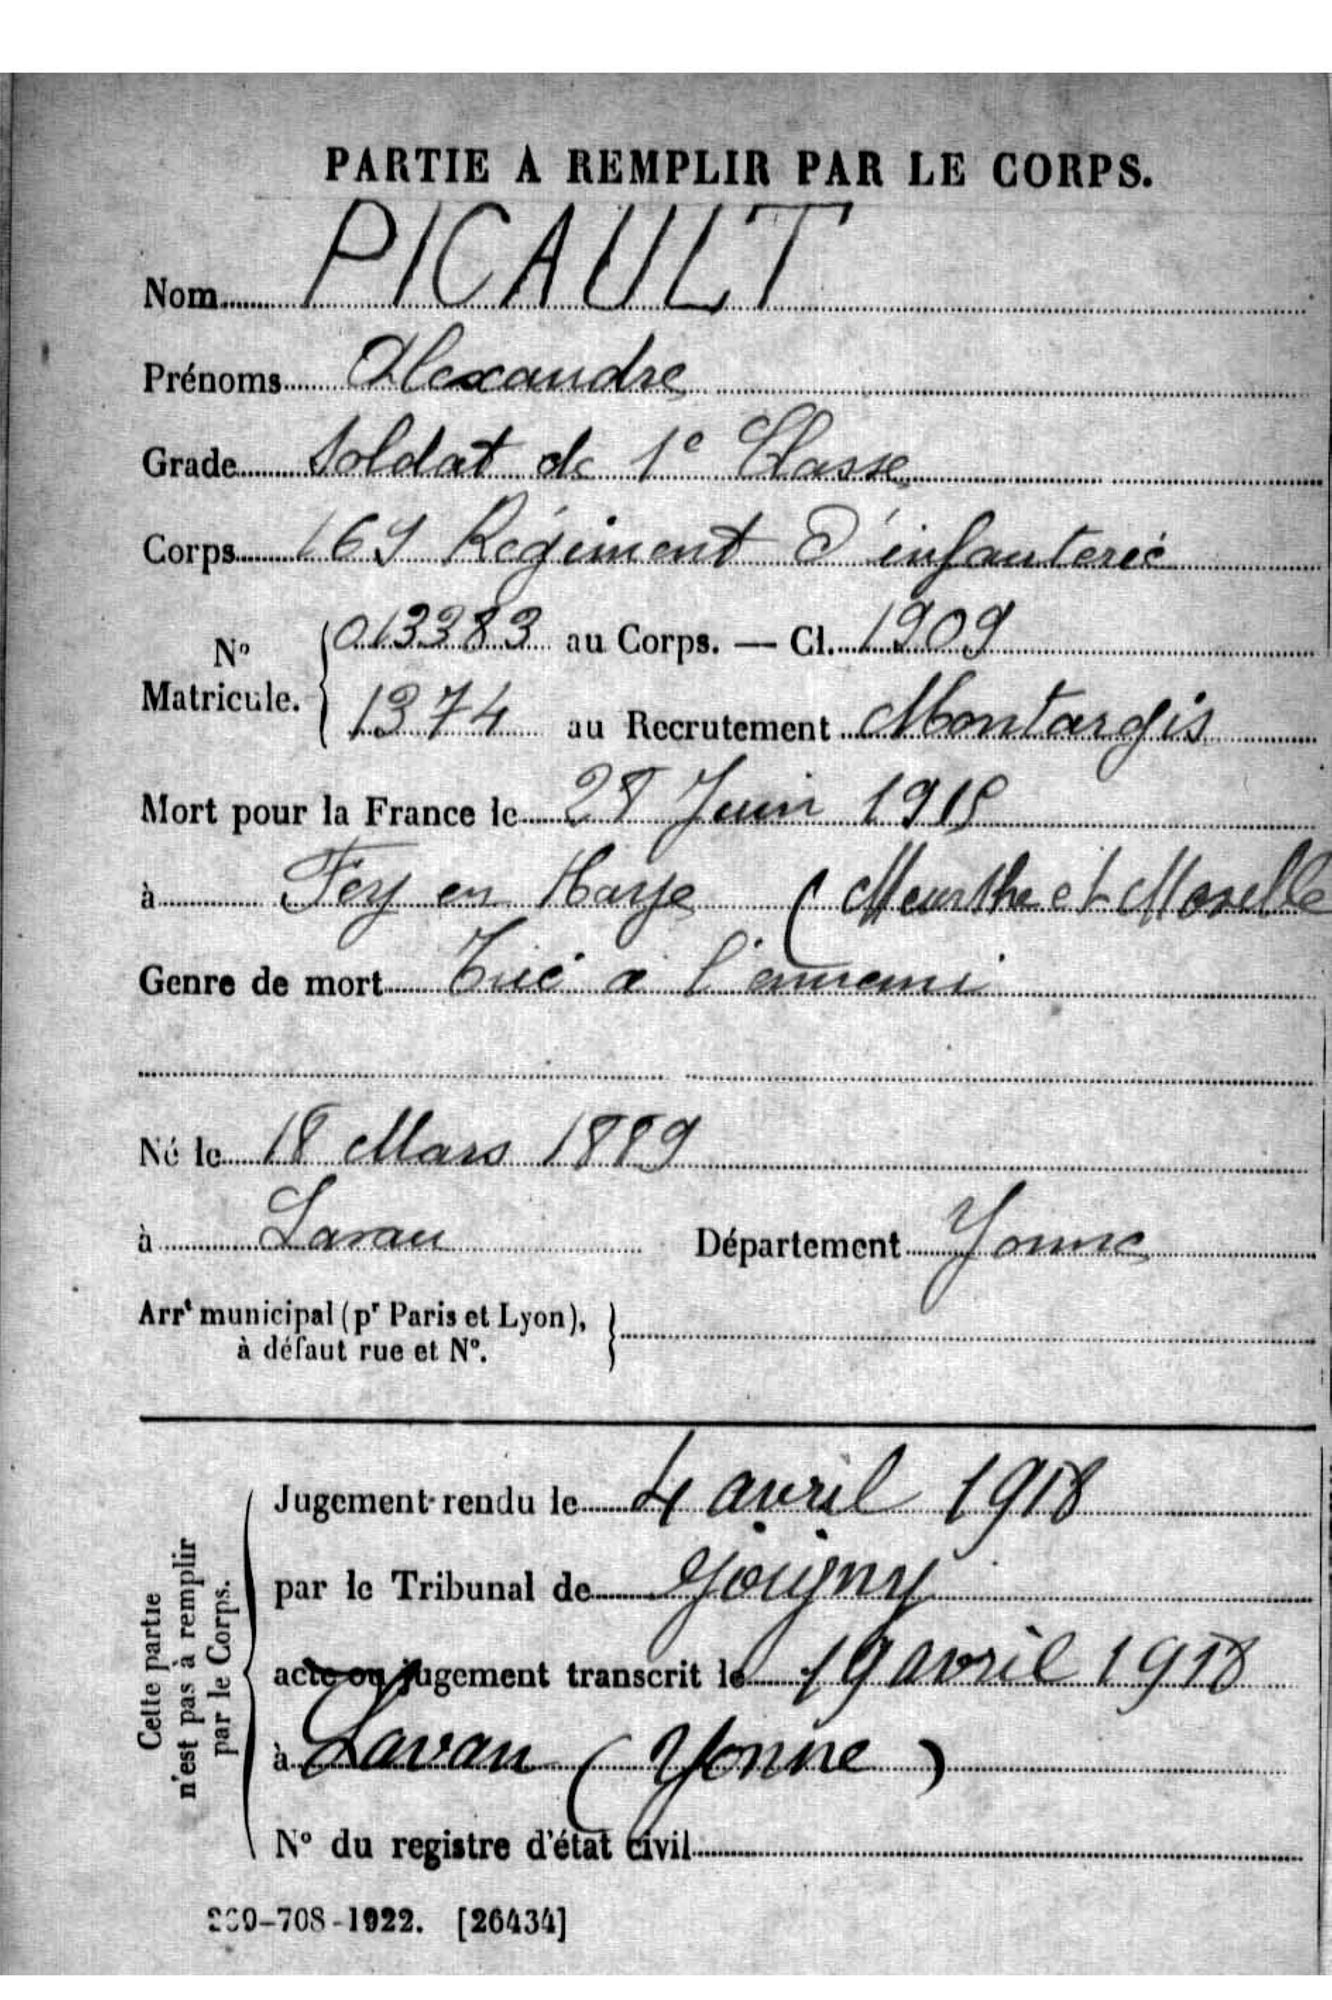 PARTIE A REMPLIR PAR LE CORPS.
Nom PICAULT
Prénoms Alexandre
Grade Soldat de 1e Classe
Corps 169 Régiment d'infanterie
No Matricule. 013383 au Corps. — Cl. 1909
1374 au Recrutement Montargis
Mort pour la France le 28 Juin 1915
à Fey en Haye (Meurthe et Moselle
Genre de mort Tué à l'ennemi
Né le 18 Mars 1889
à Lavau Département Yonne
Arrt municipal (pr Paris et Lyon),
à défaut rue et No.
Cette partie
n'est pas à remplir
par le Corps.
Jugement rendu le 4 avril 1918
par le Tribunal de Joigny
acte ou jugement transcrit le 19 avril 1918
à Lavau (Yonne)
No du registre d'état civil
-708-1922. [26434]